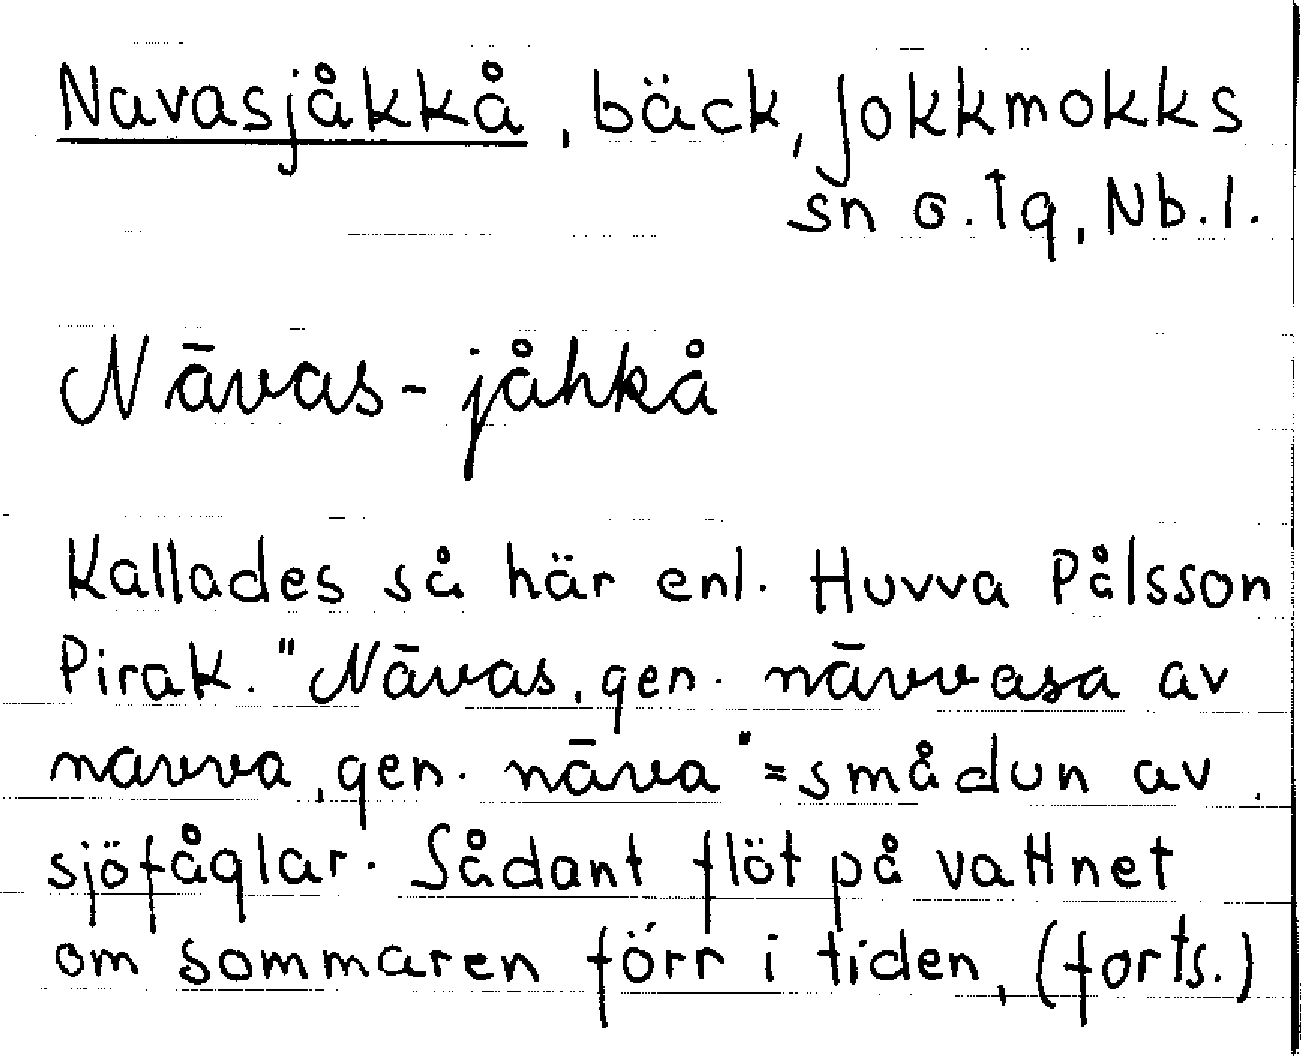 Navasjåkkå, bäck, Jokkmokks
sn o. lg, Nb. l.
Nāvas-jåhkå
Kallades så här enl. Huvva Pålsson
Pirak. "Nāvas, gen. nāvvasa av
navva, gen. nāva" = smådun av
sjöfåglar. Sådant flöt på vattnet
om sommaren förr i tiden, (forts.)